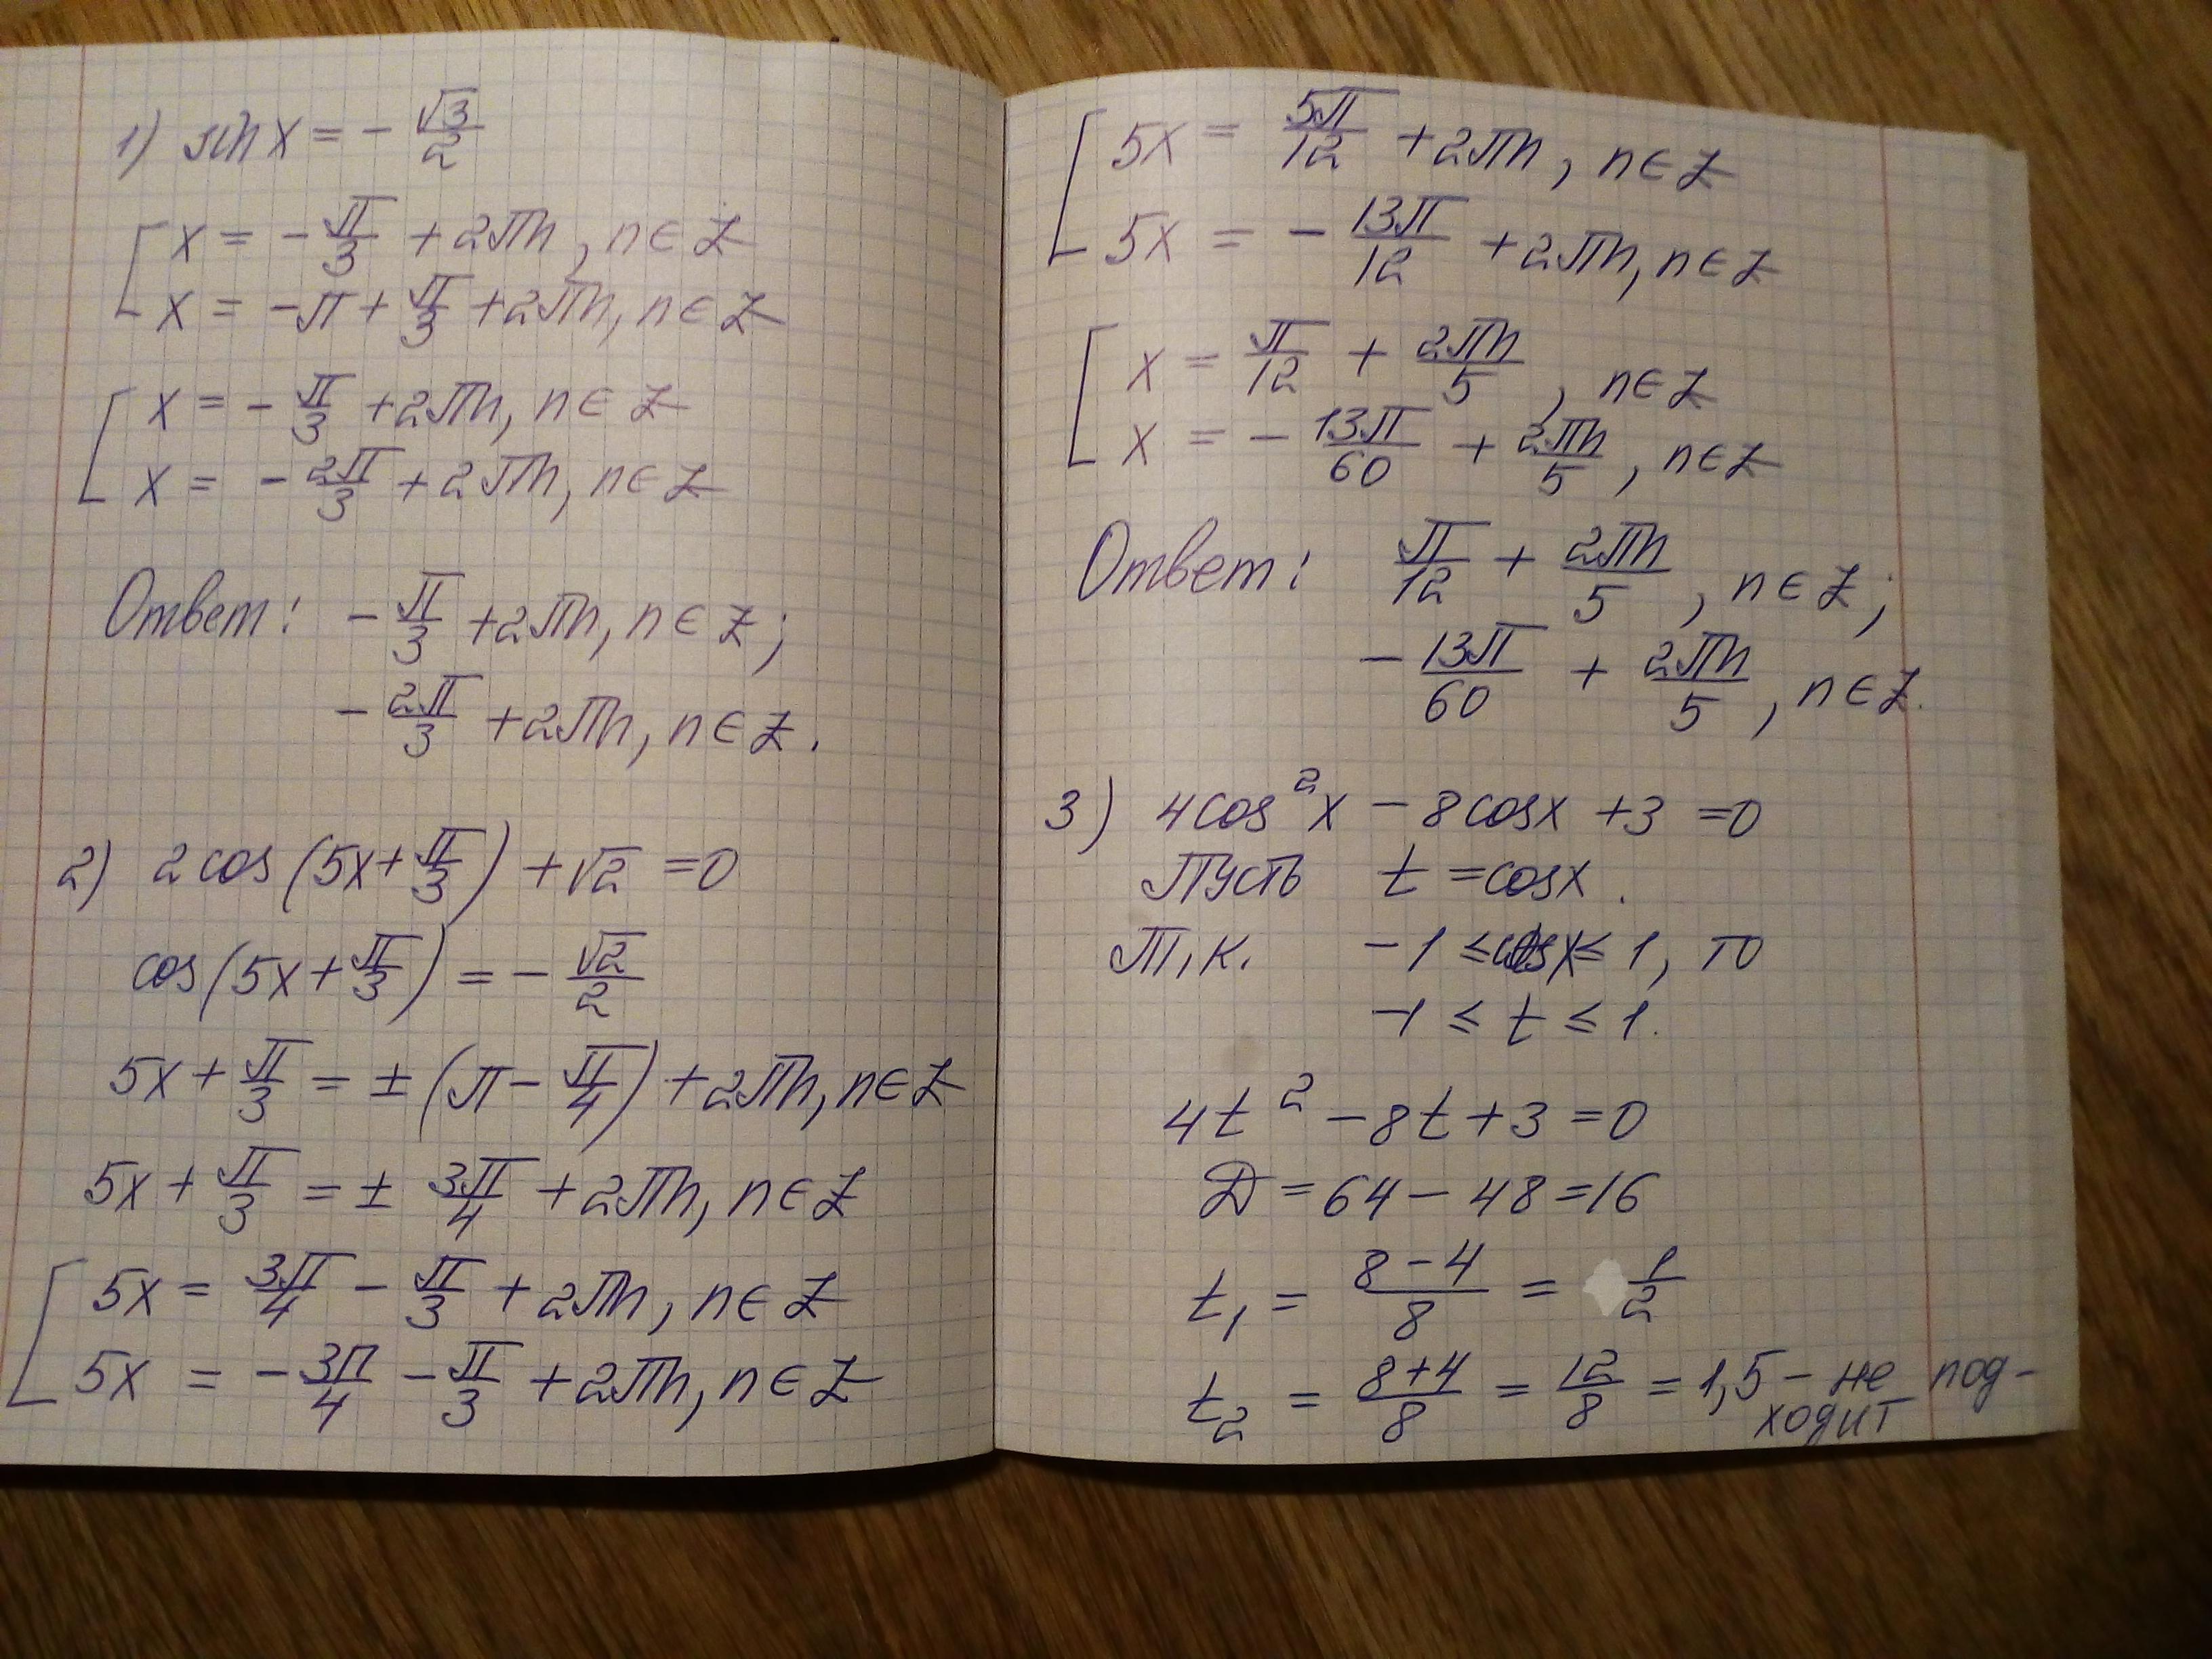 1) sin x = - √3/2
[ x = - π/3 + 2πn, n ∈ Z
x = -π + π/3 + 2πn, n ∈ Z
[ x = - π/3 + 2πn, n ∈ Z
x = - 2π/3 + 2πn, n ∈ Z
Ответ: - π/3 + 2πn, n ∈ Z;
- 2π/3 + 2πn, n ∈ Z.
2) 2cos(5x + π/3) + √2 = 0
cos(5x + π/3) = - √2/2
5x + π/3 = ± (π - π/4) + 2πn, n ∈ Z
5x + π/3 = ± 3π/4 + 2πn, n ∈ Z
[ 5x = 3π/4 - π/3 + 2πn, n ∈ Z
5x = - 3π/4 - π/3 + 2πn, n ∈ Z
[ 5x = 5π/12 + 2πn, n ∈ Z
5x = - 13π/12 + 2πn, n ∈ Z
[ x = π/12 + 2πn/5, n ∈ Z
x = - 13π/60 + 2πn/5, n ∈ Z
Ответ: π/12 + 2πn/5, n ∈ Z;
- 13π/60 + 2πn/5, n ∈ Z.
3) 4cos²x - 8cosx + 3 = 0
Пусть t = cosx.
Т.к. -1 ≤ cosx ≤ 1, то
-1 ≤ t ≤ 1.
4t² - 8t + 3 = 0
D = 64 - 48 = 16
t₁ = (8-4)/8 = 1/2
t₂ = (8+4)/8 = 12/8 = 1,5 - не под-
ходит